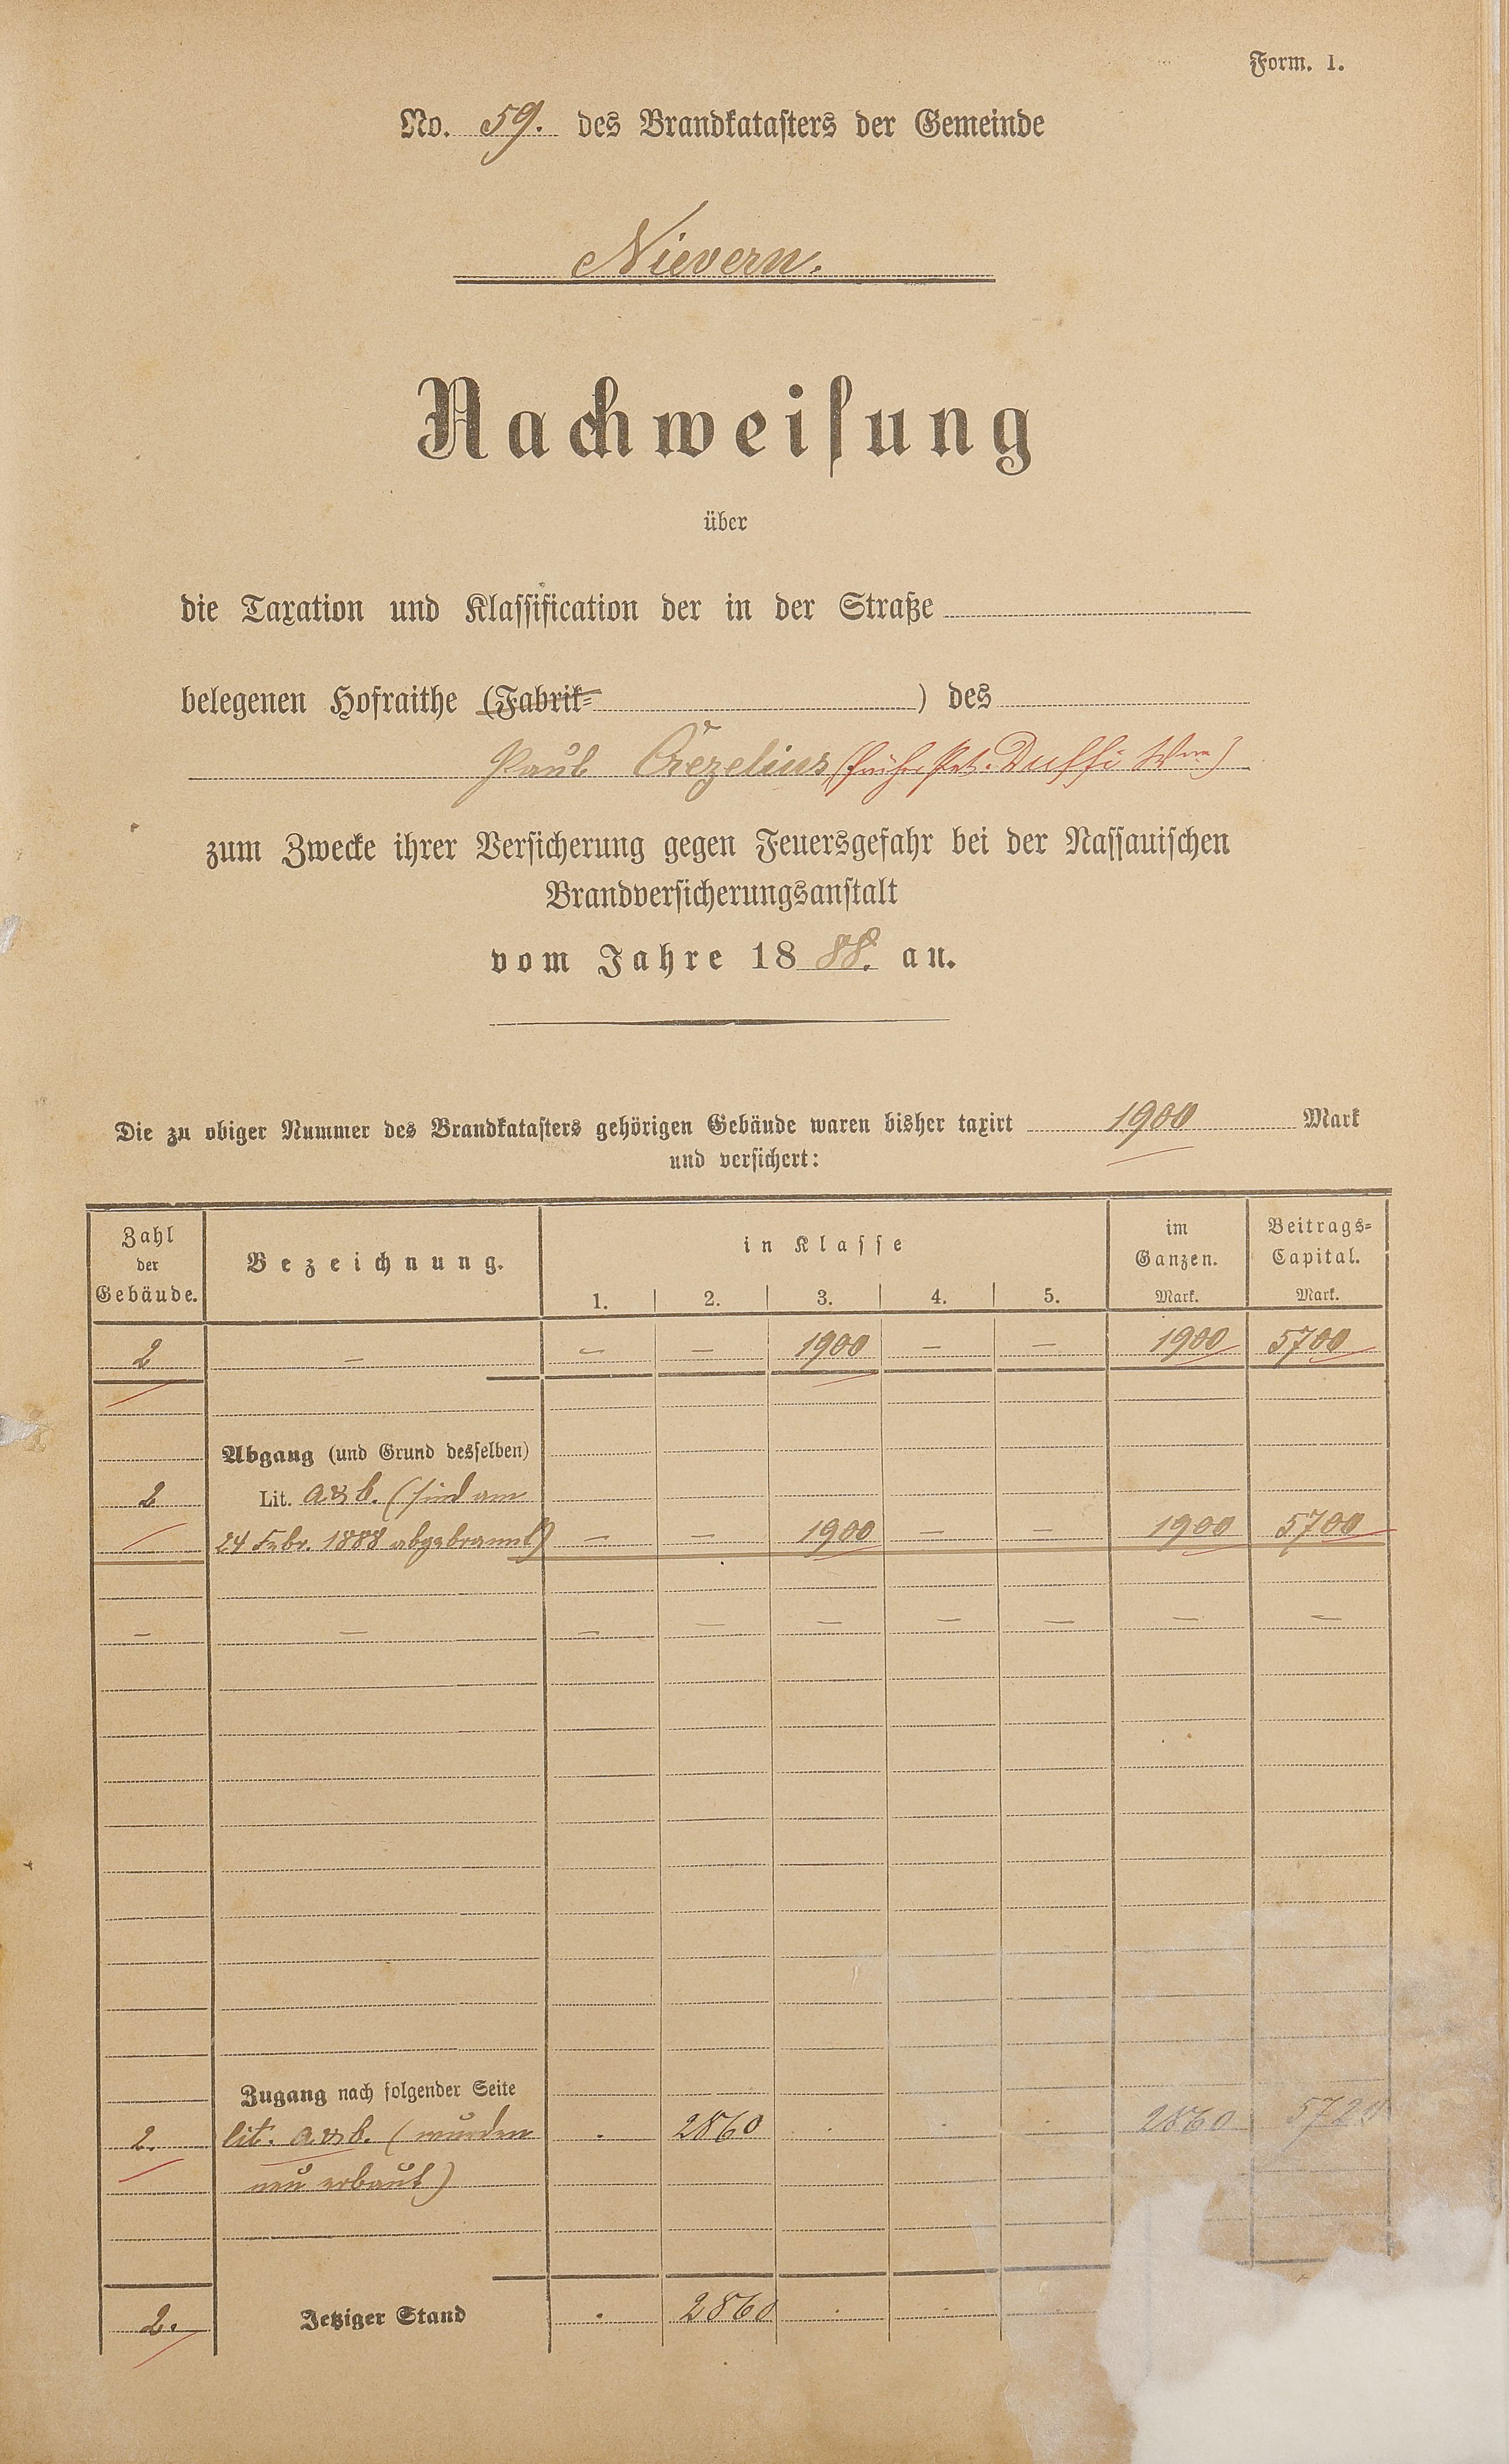 Form. 1.
No. 59. des Brandkatasters der Gemeinde
Nievern.
Nachweisung
über
die Taxation und Klassification der in der Straße
belegenen Hofraithe (Fabrik= ) des
Paul Crezelius (früher Pet. Duffi Wwe)
zum Zwecke ihrer Versicherung gegen Feuersgefahr bei der Nassauischen
Brandversicherungsanstalt
vom Jahre 1888. an.
Die zu obiger Nummer des Brandkatasters gehörigen Gebäude waren bisher taxirt 1900 Mark
und versichert:
Zahl der Gebäude. Bezeichnung. in Klasse im Ganzen. Beitrags=Capital.
1. 2. 3. 4. 5. Mark. Mark.
2 — — — 1900 — — 1900 5700
Abgang (und Grund desselben)
2 Lit. a & b. (sind am
24 Febr. 1888 abgebrannt) — — 1900 — — 1900 5700
— — — — — — — — —
Zugang nach folgender Seite
2. lit. a & b. (wurden . 2860 . . . 2860 5720
neu erbaut)
2. Jetziger Stand . 2860 . . .